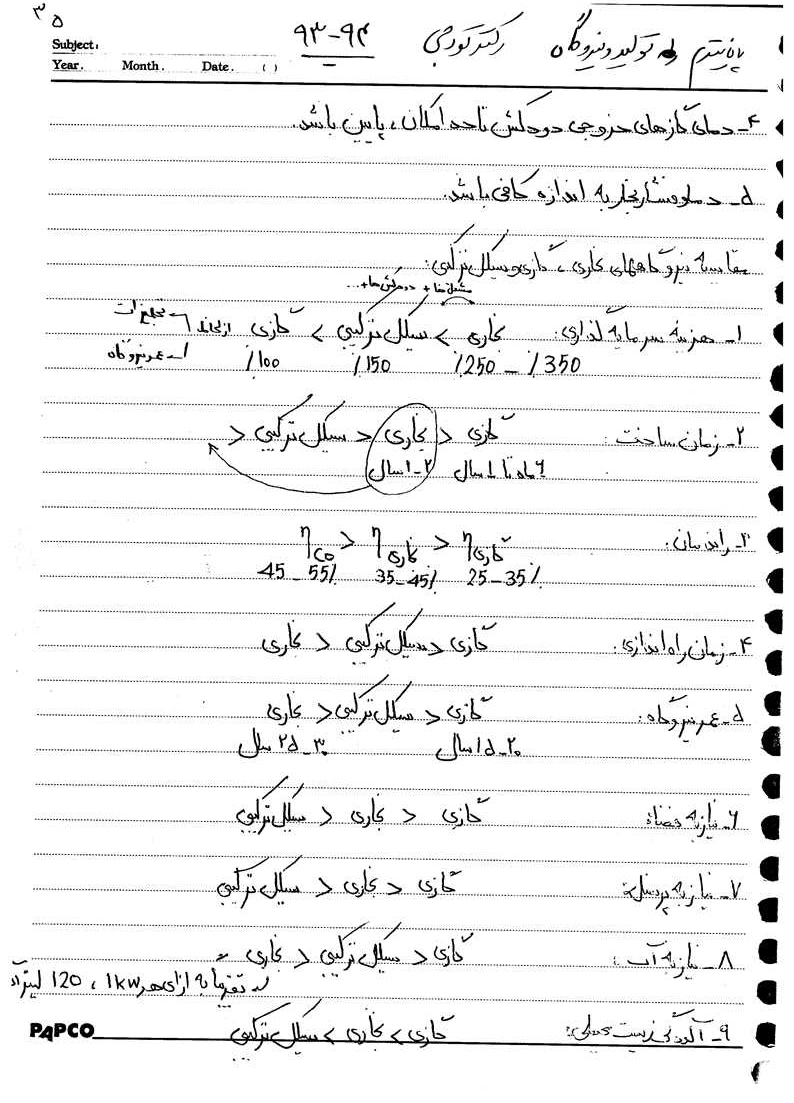 ۳۵
Subject:
Year. Month. Date. ( )
۹۳-۹۴
دکتر تورجی
پان‌میترم تولید و نیروگاه
۴- دمای گازهای خروجی دودکش تا حد امکان، پایین باشد.
۵- دما و فشار بخار به اندازه کافی باشد.
مقایسه نیروگاههای بخاری، گازی و سیکل ترکیبی:
مشعل‌ها + دودکش‌ها + ...
۱- هزینه سرمایه گذاری: بخاری > سیکل ترکیبی > گازی از لحاظ تجهیزات
عمر نیروگاه
٪350 - ٪250 ٪150 ٪100
۲- زمان ساخت: گازی < بخاری < سیکل ترکیبی <
۶ ماه تا ۱ سال ۲-۱ سال
۳- راندمان: η گازی < η بخاری < η CC
25-35٪ 35-45٪ 45-55٪
۴- زمان راه اندازی: گازی < سیکل ترکیبی < بخاری
۵- عمر نیروگاه: گازی < سیکل ترکیبی < بخاری
۲۰-۱۵ سال ۳۰-۲۵ سال
۶- نیاز به فضا: گازی < بخاری < سیکل ترکیبی
۷- نیاز به پرسنل: گازی < بخاری < سیکل ترکیبی
۸- نیاز به آب: گازی < سیکل ترکیبی < بخاری
تقریبا به ازای هر 1kw، 120 لیتر آب
۹- آلودگی زیست محیطی: گازی > بخاری > سیکل ترکیبی
PAPCO